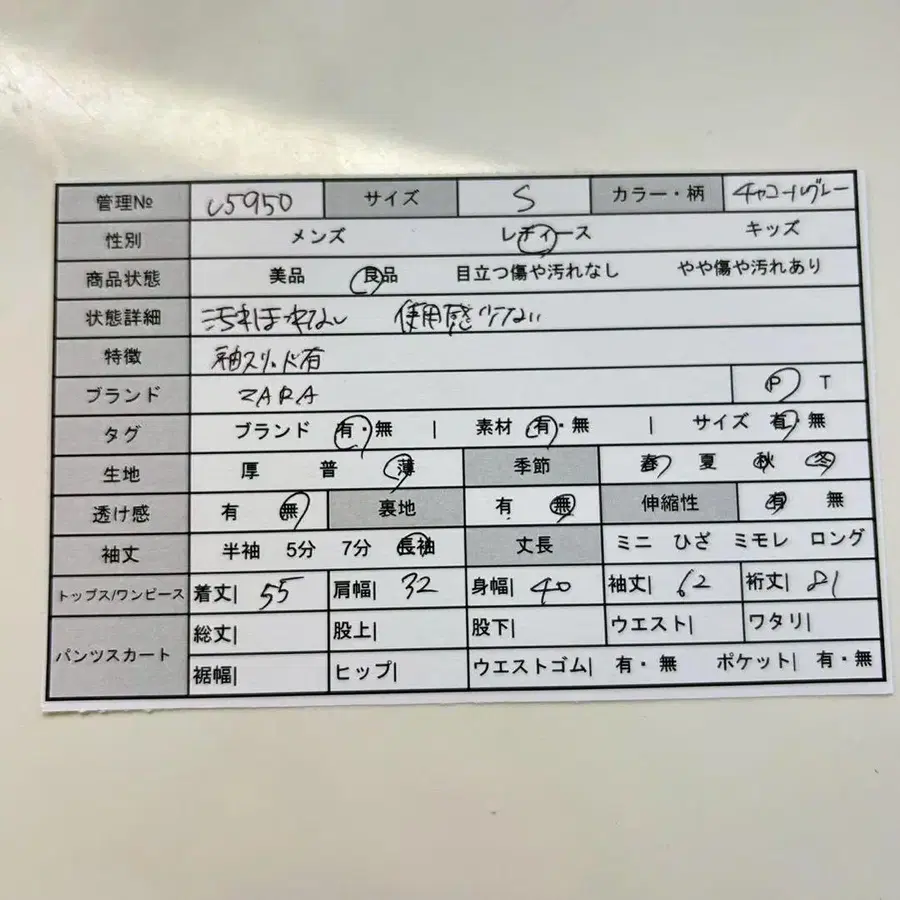 管理№ U5950 サイズ S カラー・柄 チャコールグレー
性別 メンズ レディース キッズ
商品状態 美品 良品 目立つ傷や汚れなし やや傷や汚れあり
状態詳細 汚れほぼなし 使用感少ない
特徴 袖スリット有
ブランド ZARA P T
タグ ブランド 有・無 | 素材 有・無 | サイズ 有・無
生地 厚 普 薄 季節 春 夏 秋 冬
透け感 有 無 裏地 有 無 伸縮性 有 無
袖丈 半袖 5分 7分 長袖 丈長 ミニ ひざ ミモレ ロング
トップス/ワンピース 着丈| 55 肩幅| 32 身幅| 40 袖丈| 62 裄丈| 81
パンツスカート 総丈| 股上| 股下| ウエスト| ワタリ|
裾幅| ヒップ| ウエストゴム| 有・無 ポケット| 有・無